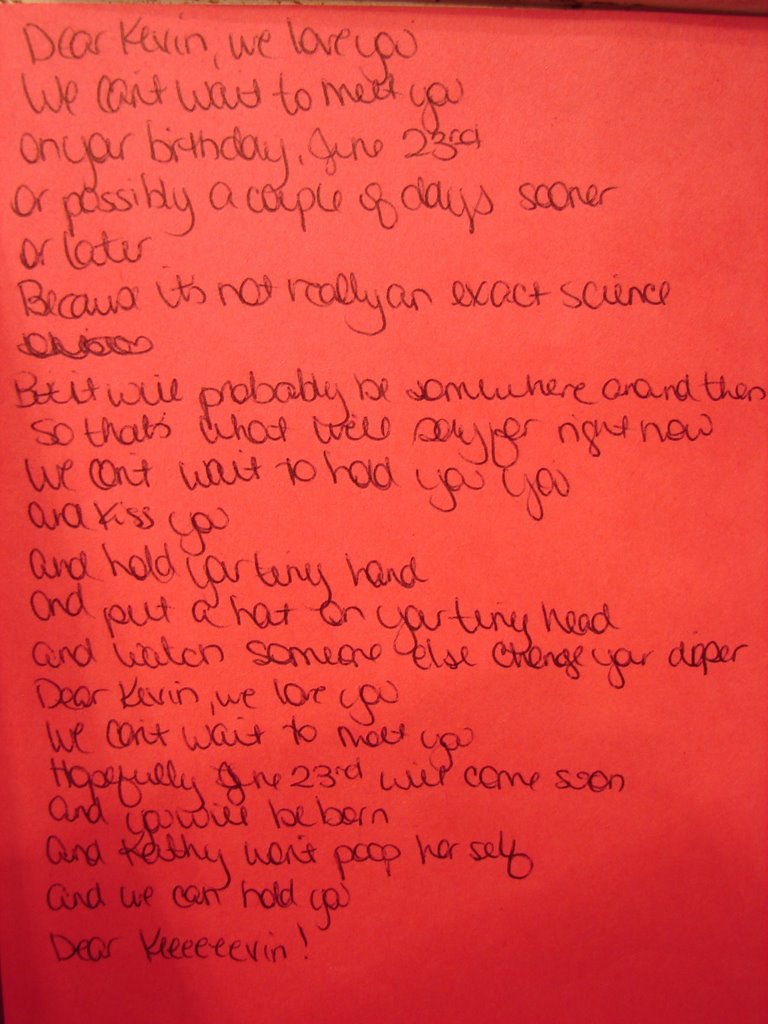 Dear Kevin, we love you
We can't wait to meet you
on your birthday, June 23rd
or possibly a couple of days sooner
or later
Because it's not really an exact science
But it will probably be somewhere around then
so that's what we'll say for right now
We can't wait to hold you you
and kiss you
and hold your tiny hand
and put a hat on your tiny head
and watch someone else change your diaper
Dear Kevin, we love you
We can't wait to meet you
Hopefully June 23rd will come soon
and you will be born
And Kathy won't poop herself
and we can hold you
Dear Keeeeeevin!